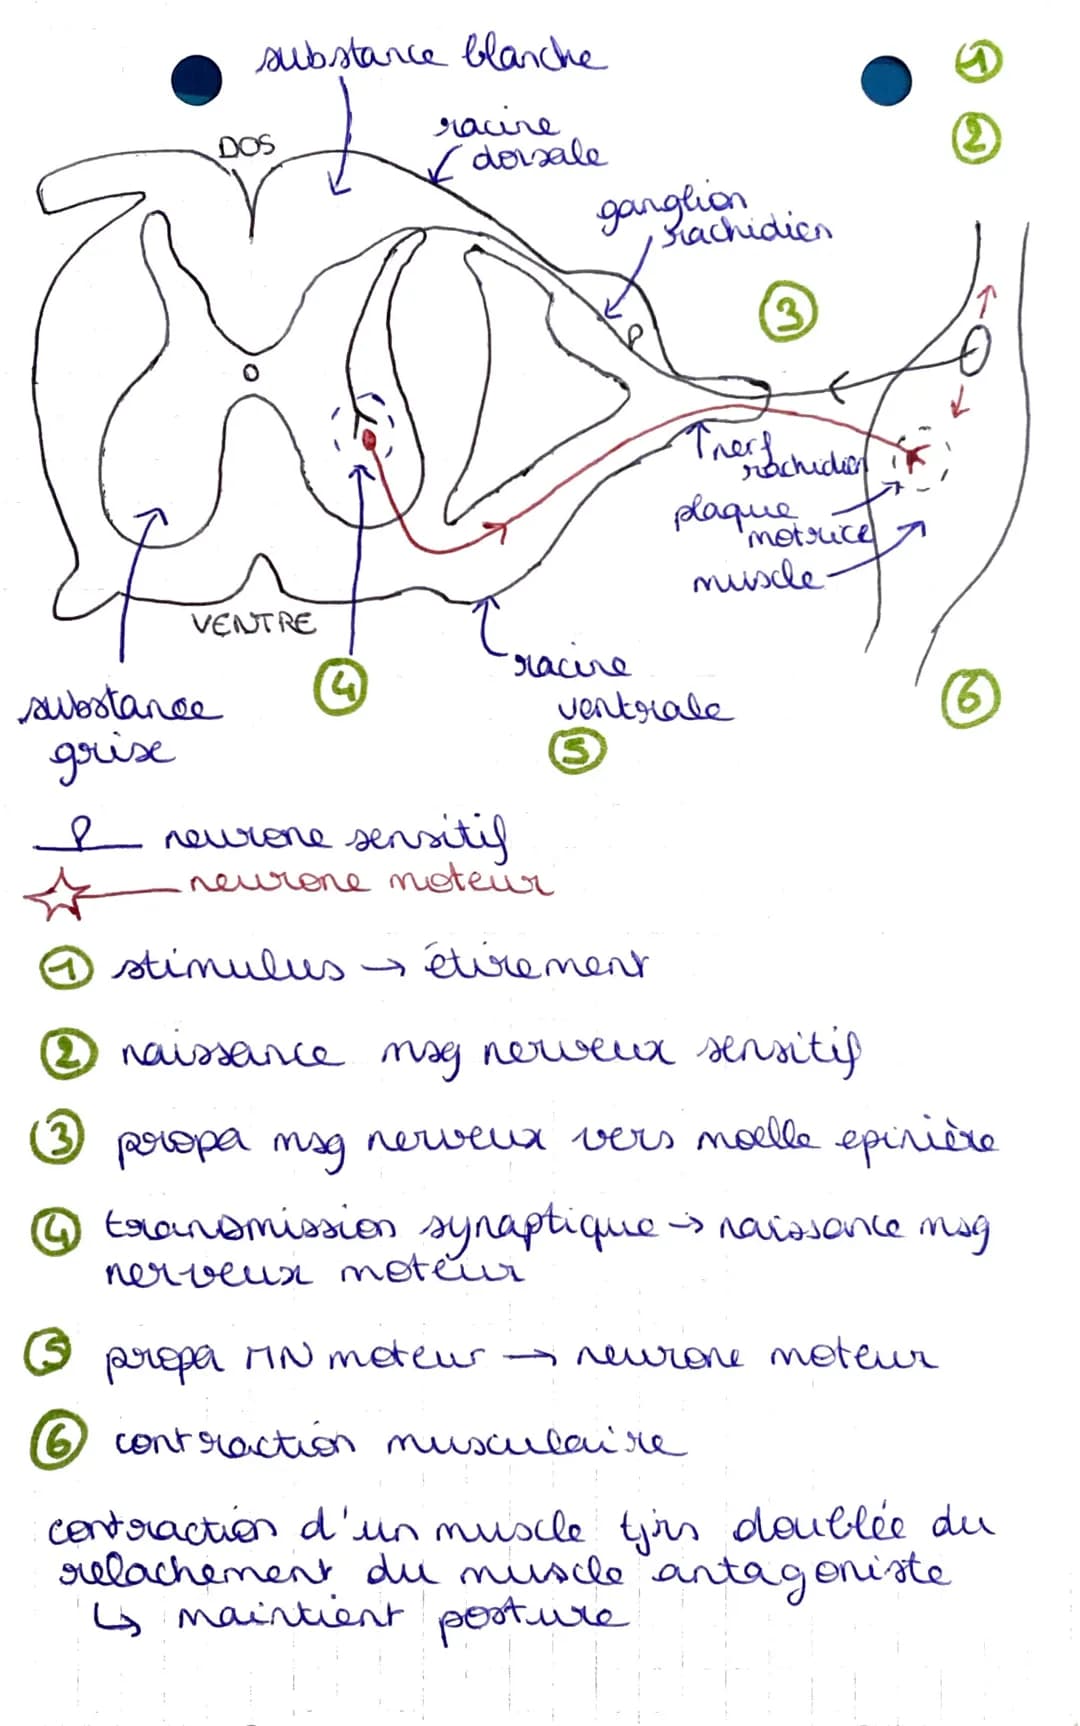 substance blanche
①
②
racine
dorsale
DOS
ganglion
rachidien
③
nerf
rachidien
plaque
motrice
muscle
VENTRE
racine
ventrale
④
⑤
⑥
substance
grise
neurone sensitif
neurone moteur
① stimulus → étirement
② naissance msg nerveux sensitif
③ propa msg nerveux vers moelle epinière
④ transmission synaptique → naissance msg
nerveux moteur
⑤ propa MN moteur → neurone moteur
⑥ contraction musculaire
contraction d'un muscle tjrs doublée du
relachement du muscle antagoniste
↳ maintient posture